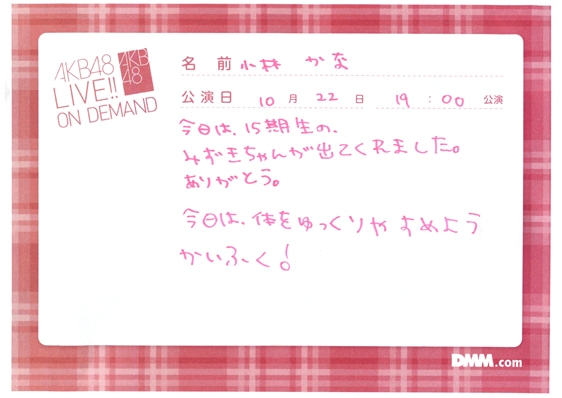 AKB48
LIVE!!
ON DEMAND
AKB
48
名 前 小林 かな
公演日 10 月 22 日 19 : 00 公演
今日は、15期生の、
みずきちゃんが出てくれました。
ありがとう。
今日は、体をゆっくりやすめよう
かいふく!
DMM.com